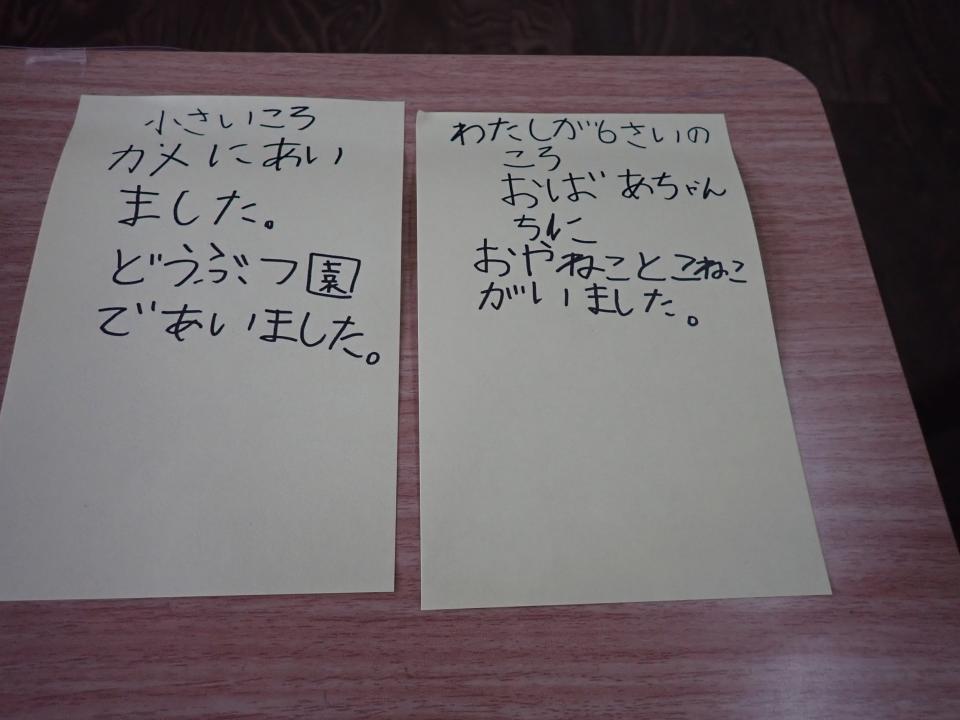 小さいころ
カメにあい
ました。
どうぶつ園
であいました。
わたしが6さいの
ころ
おばあちゃん
ちに
おやねことこねこ
がいました。